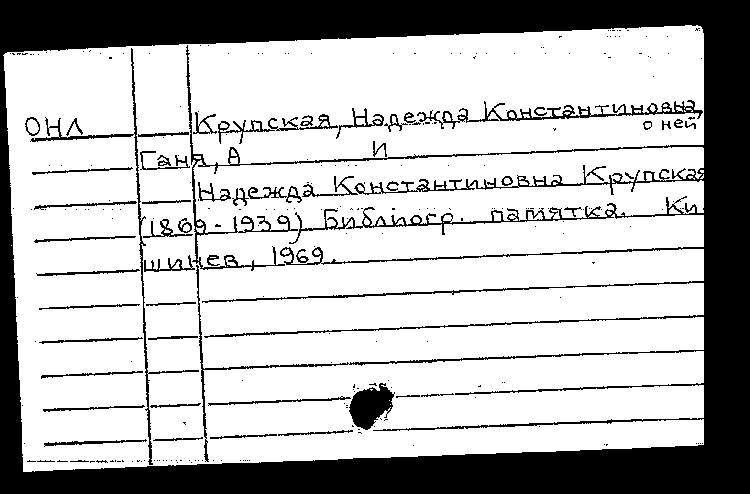 ОНЛ Крупская, Надежда Константиновна,
о ней
Ганя, А И
Надежда Константиновна Крупская
(1869-1939) Библиогр. памятка. Ки-
шинев, 1969.